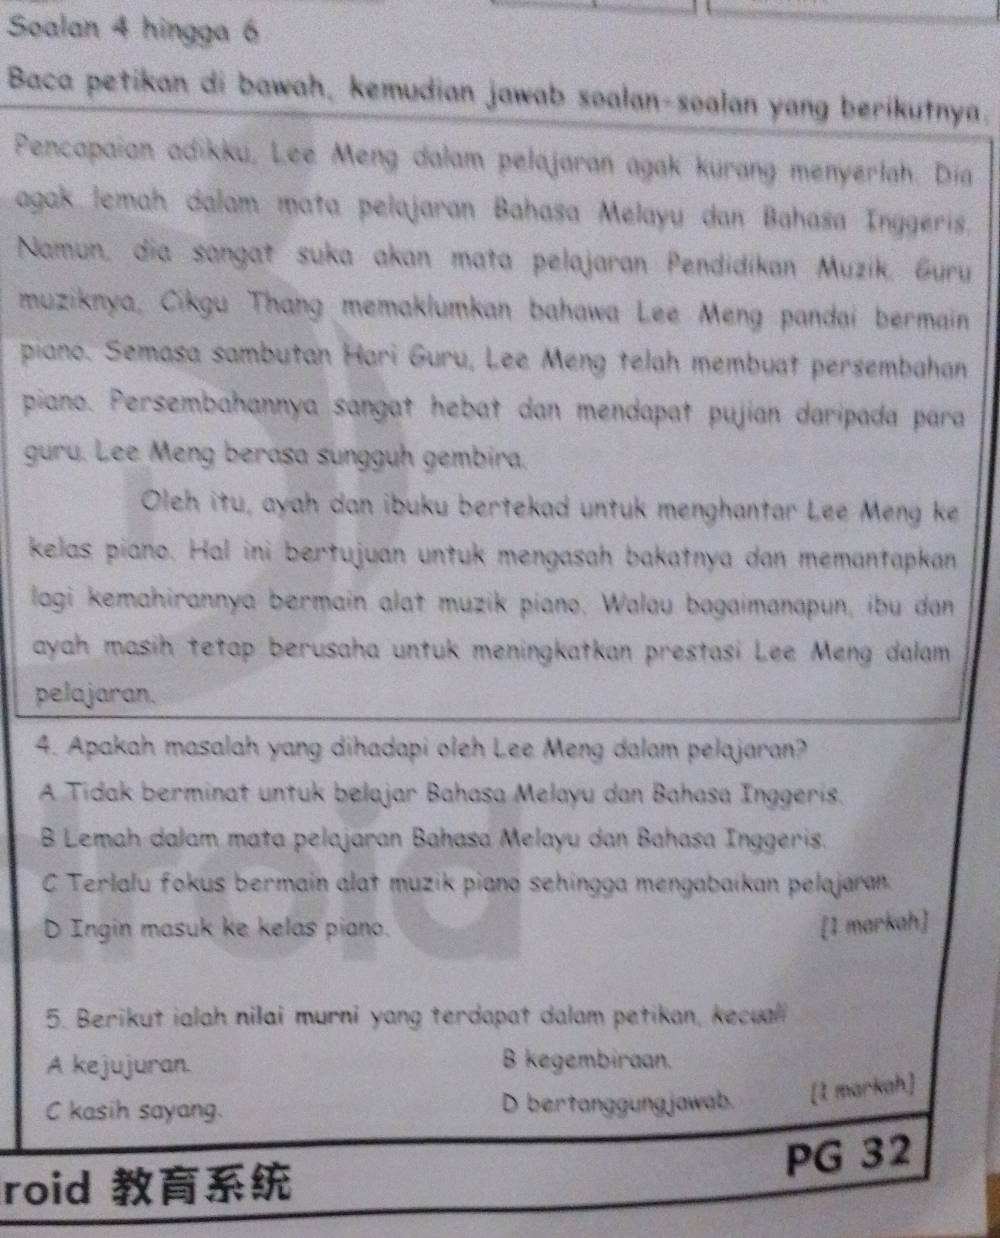 Soalan 4 hingga 6
Baca petikan di bawah, kemudian jawab soalan-soalan yang berikutnya.
Pencapaian adikku, Lee Meng dalam pelajaran agak kurang menyerlah. Dia
agak lemah dalam mata pelajaran Bahasa Melayu dan Bahasa Inggeris.
Namun, dia sangat suka akan mata pelajaran Pendidikan Muzik. Guru
muziknya, Cikgu Thang memaklumkan bahawa Lee Meng pandai bermain
piano. Semasa sambutan Hari Guru, Lee Meng telah membuat persembahan
piano. Persembahannya sangat hebat dan mendapat pujian daripada para
guru. Lee Meng berasa sungguh gembira.
Oleh itu, ayah dan ibuku bertekad untuk menghantar Lee Meng ke
kelas piano. Hal ini bertujuan untuk mengasah bakatnya dan memantapkan
lagi kemahirannya bermain alat muzik piano. Walau bagaimanapun, ibu dan
ayah masih tetap berusaha untuk meningkatkan prestasi Lee Meng dalam
pelajaran.
4. Apakah masalah yang dihadapi oleh Lee Meng dalam pelajaran?
A Tidak berminat untuk belajar Bahasa Melayu dan Bahasa Inggeris.
B Lemah dalam mata pelajaran Bahasa Melayu dan Bahasa Inggeris.
C Terlalu fokus bermain alat muzik piano sehingga mengabaikan pelajaran.
D Ingin masuk ke kelas piano. [1 markah]
5. Berikut ialah nilai murni yang terdapat dalam petikan, kecuali
A kejujuran. B kegembiraan.
C kasih sayang. D bertanggungjawab. [1 markah]
roid 教育系统 PG 32